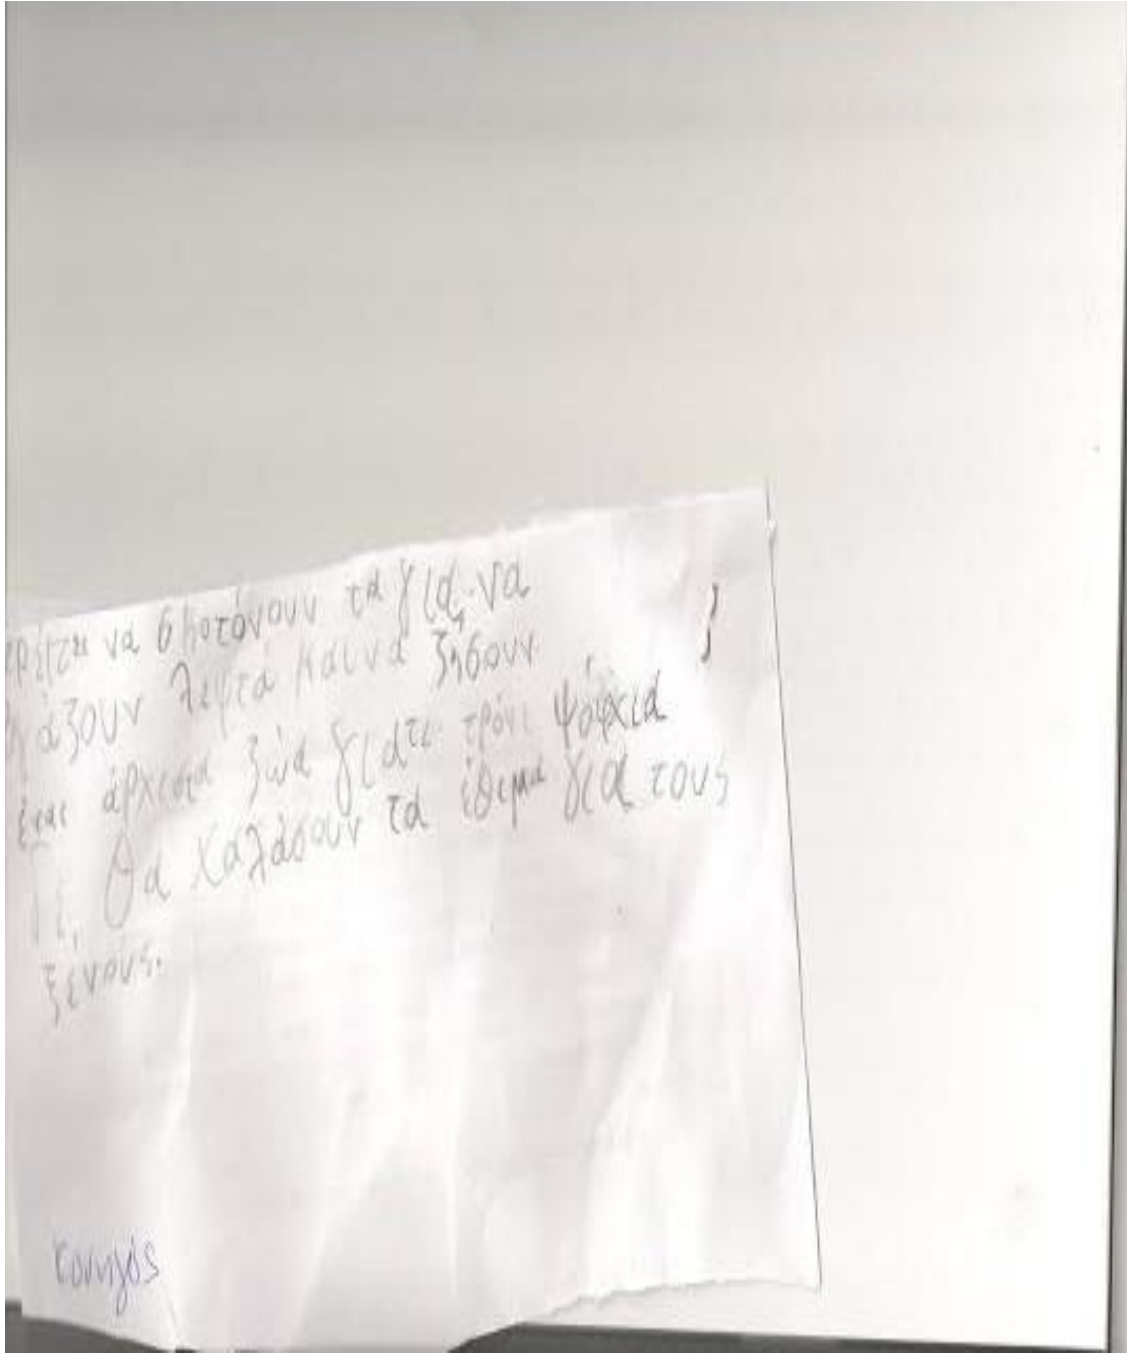 να σκοτόνουν τα για να
λεφτά και να ζήσουν
άρχεστα ζώα γιατι τρόνε ψόφχια
θα χαλάσουν τα έθεμα για τους
ξένους.
κυνηγός